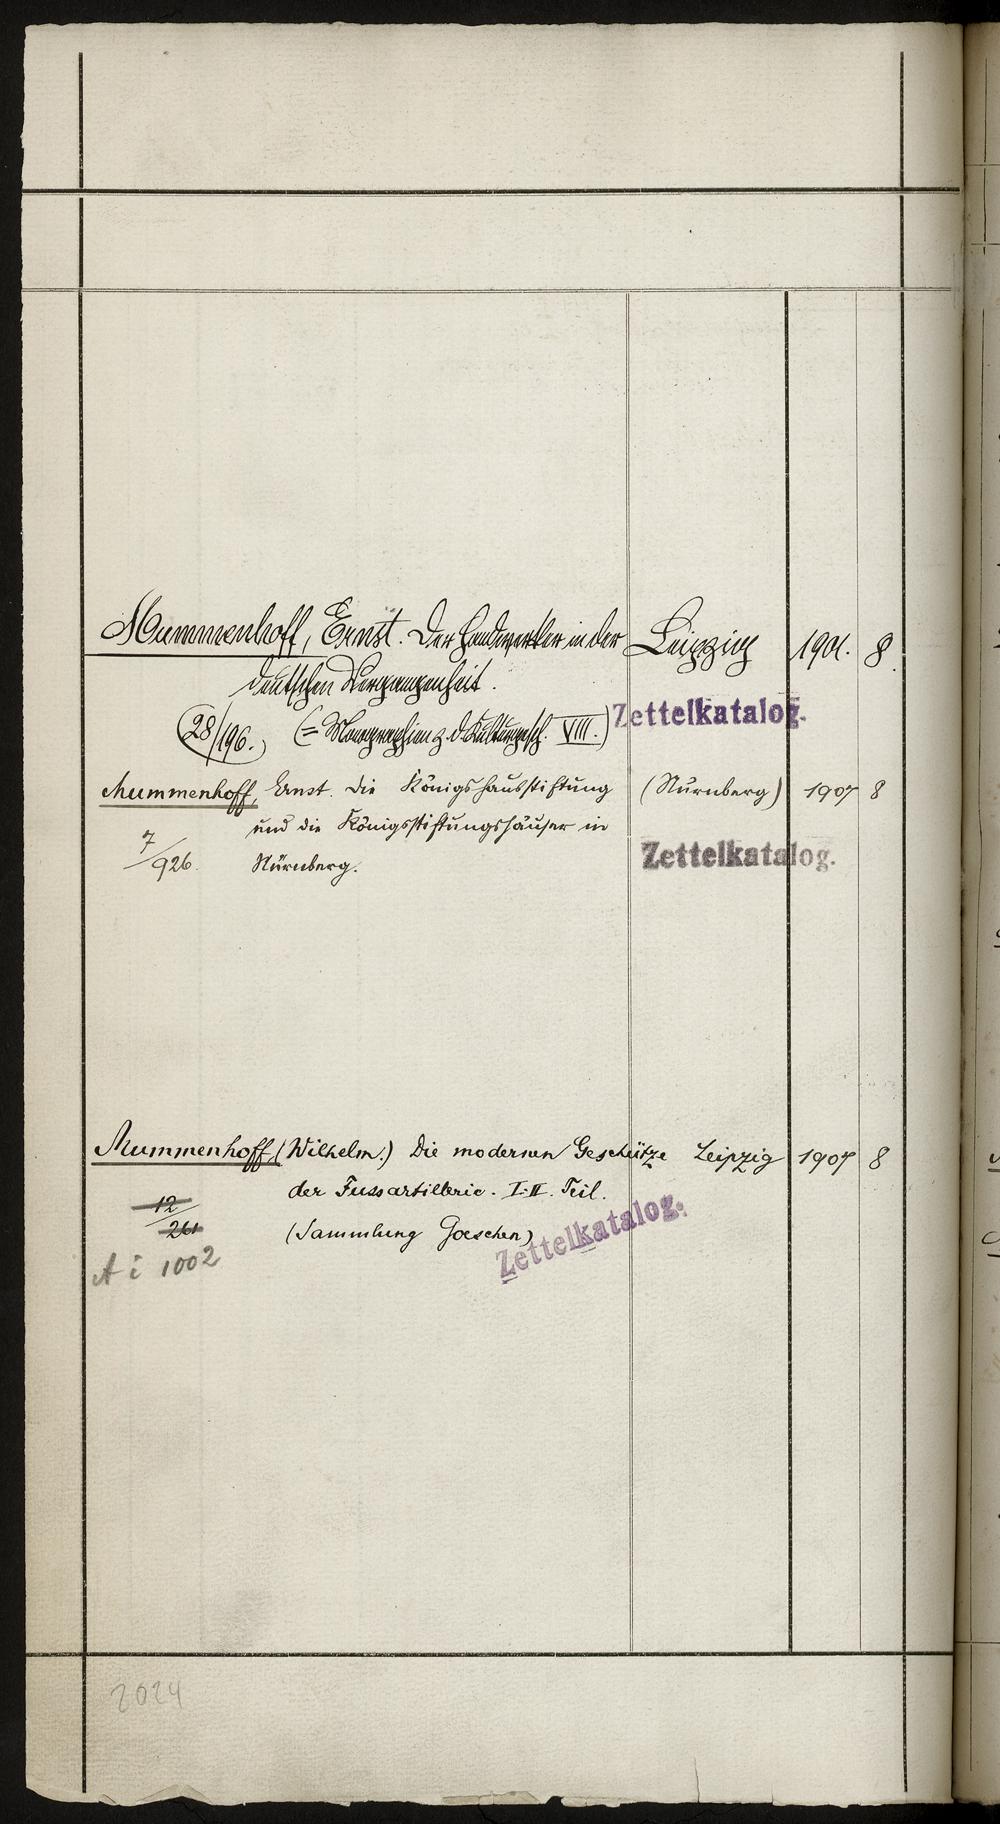 Mummenhoff, Ernst. Der Handwerker in der Leipzig 1901. 8.
deutschen Vergangenheit.
28/196. (= Monographien z. d. Kulturgesch. VIII.) Zettelkatalog.
Mummenhoff, Ernst. Die Königshausstiftung (Nürnberg) 1907 8
und die Königsstiftungshäuser in
7/926. Nürnberg. Zettelkatalog.
Mummenhoff, (Wilhelm.) Die modernen Geschütze Leipzig 1907 8
der Fussartillerie. I-II. Teil.
12/261 (Sammlung Goeschen) Zettelkatalog.
A i 1002
2024